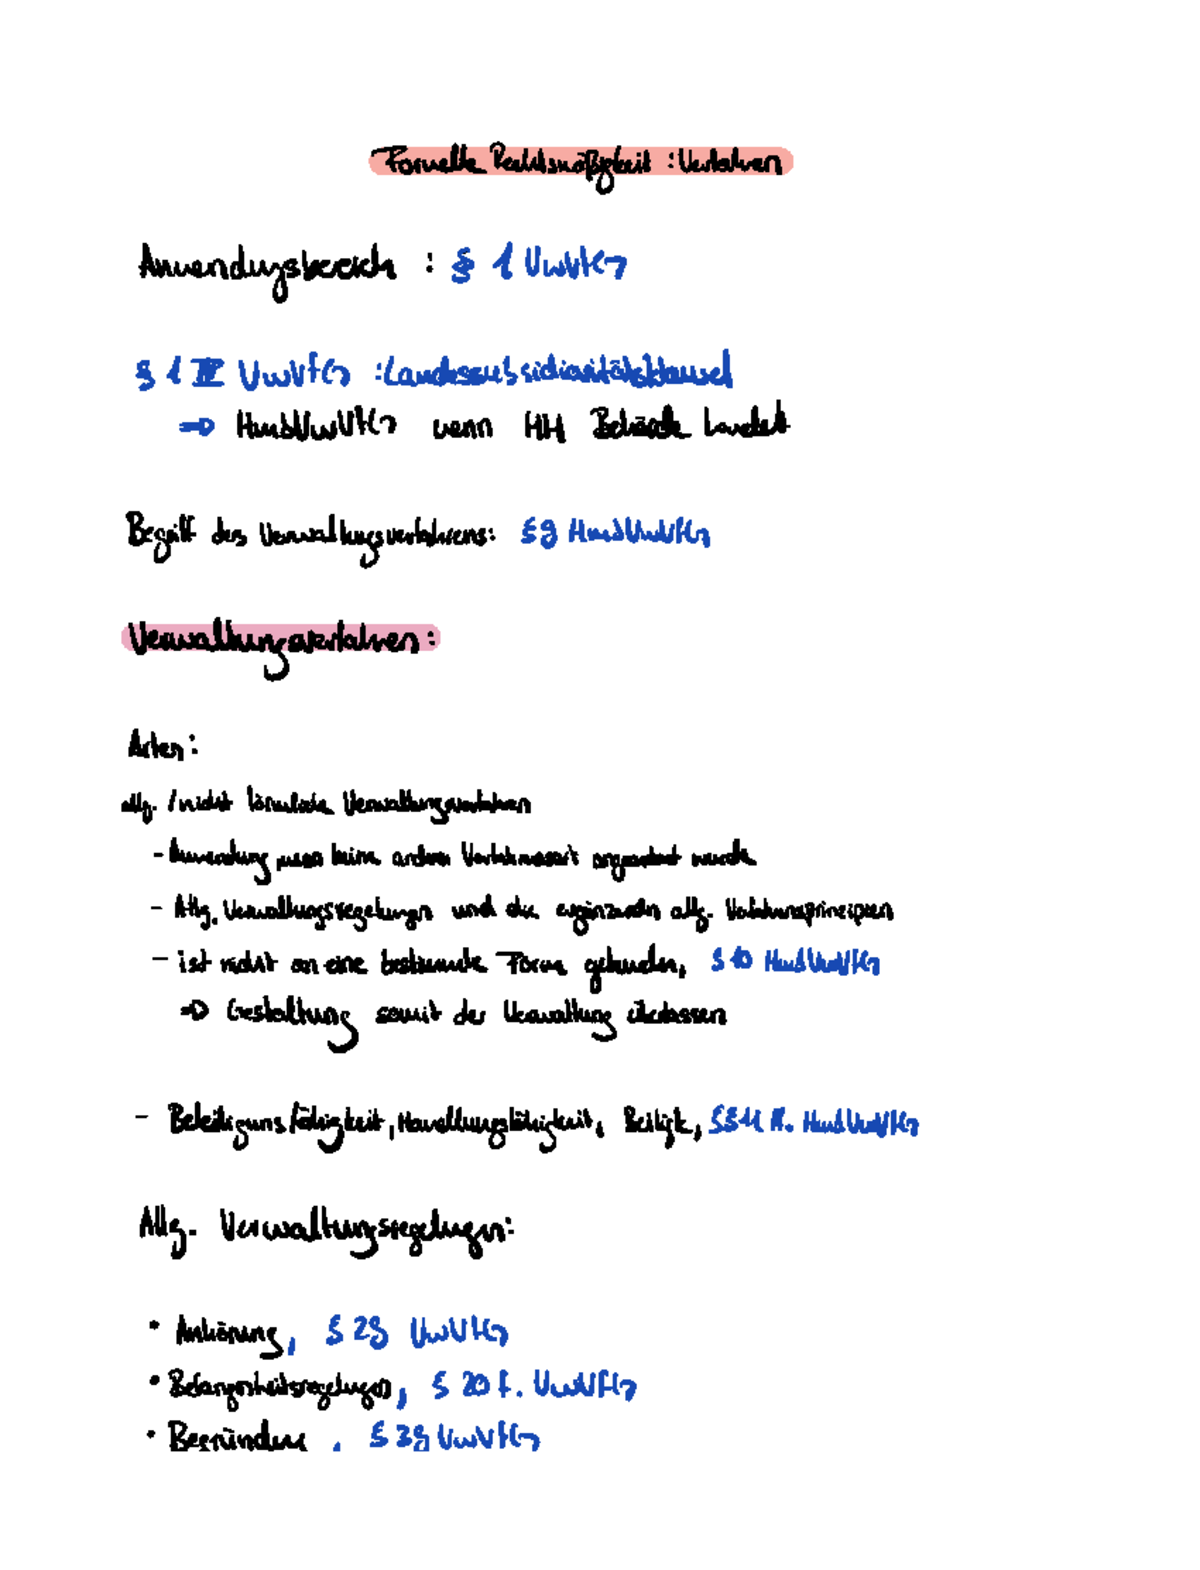 Formelle Rechtsmäßigkeit : Verfahren
Anwendungsbereich : § 1 VwVfG
§ 1 III VwVfG : Landessubsidiaritätsklausel
=> HmbVwVfG wenn HH Behörde handelt
Begriff des Verwaltungsverfahrens: § 9 HmbVwVfG
Verwaltungsverfahren :
Arten :
allg. / nicht förmliche Verwaltungsverfahren
- Anwendung, wenn keine andere Verfahrensart angeordnet wurde
- Allg. Verwaltungsregelungen und die ergänzenden allg. Verfahrensprinzipien
- ist nicht an eine bestimmte Form gebunden, § 10 HmbVwVfG
=> Gestaltung somit der Verwaltung überlassen
- Beteiligunsfähigkeit, Handlungsfähigkeit, §§ 11 ff. HmbVwVfG
Allg. Verwaltungsregelungen:
• Anhörung, § 28 VwVfG
• Befangenheitsregelungen, § 20 f. VwVfG
• Begründung, § 39 VwVfG